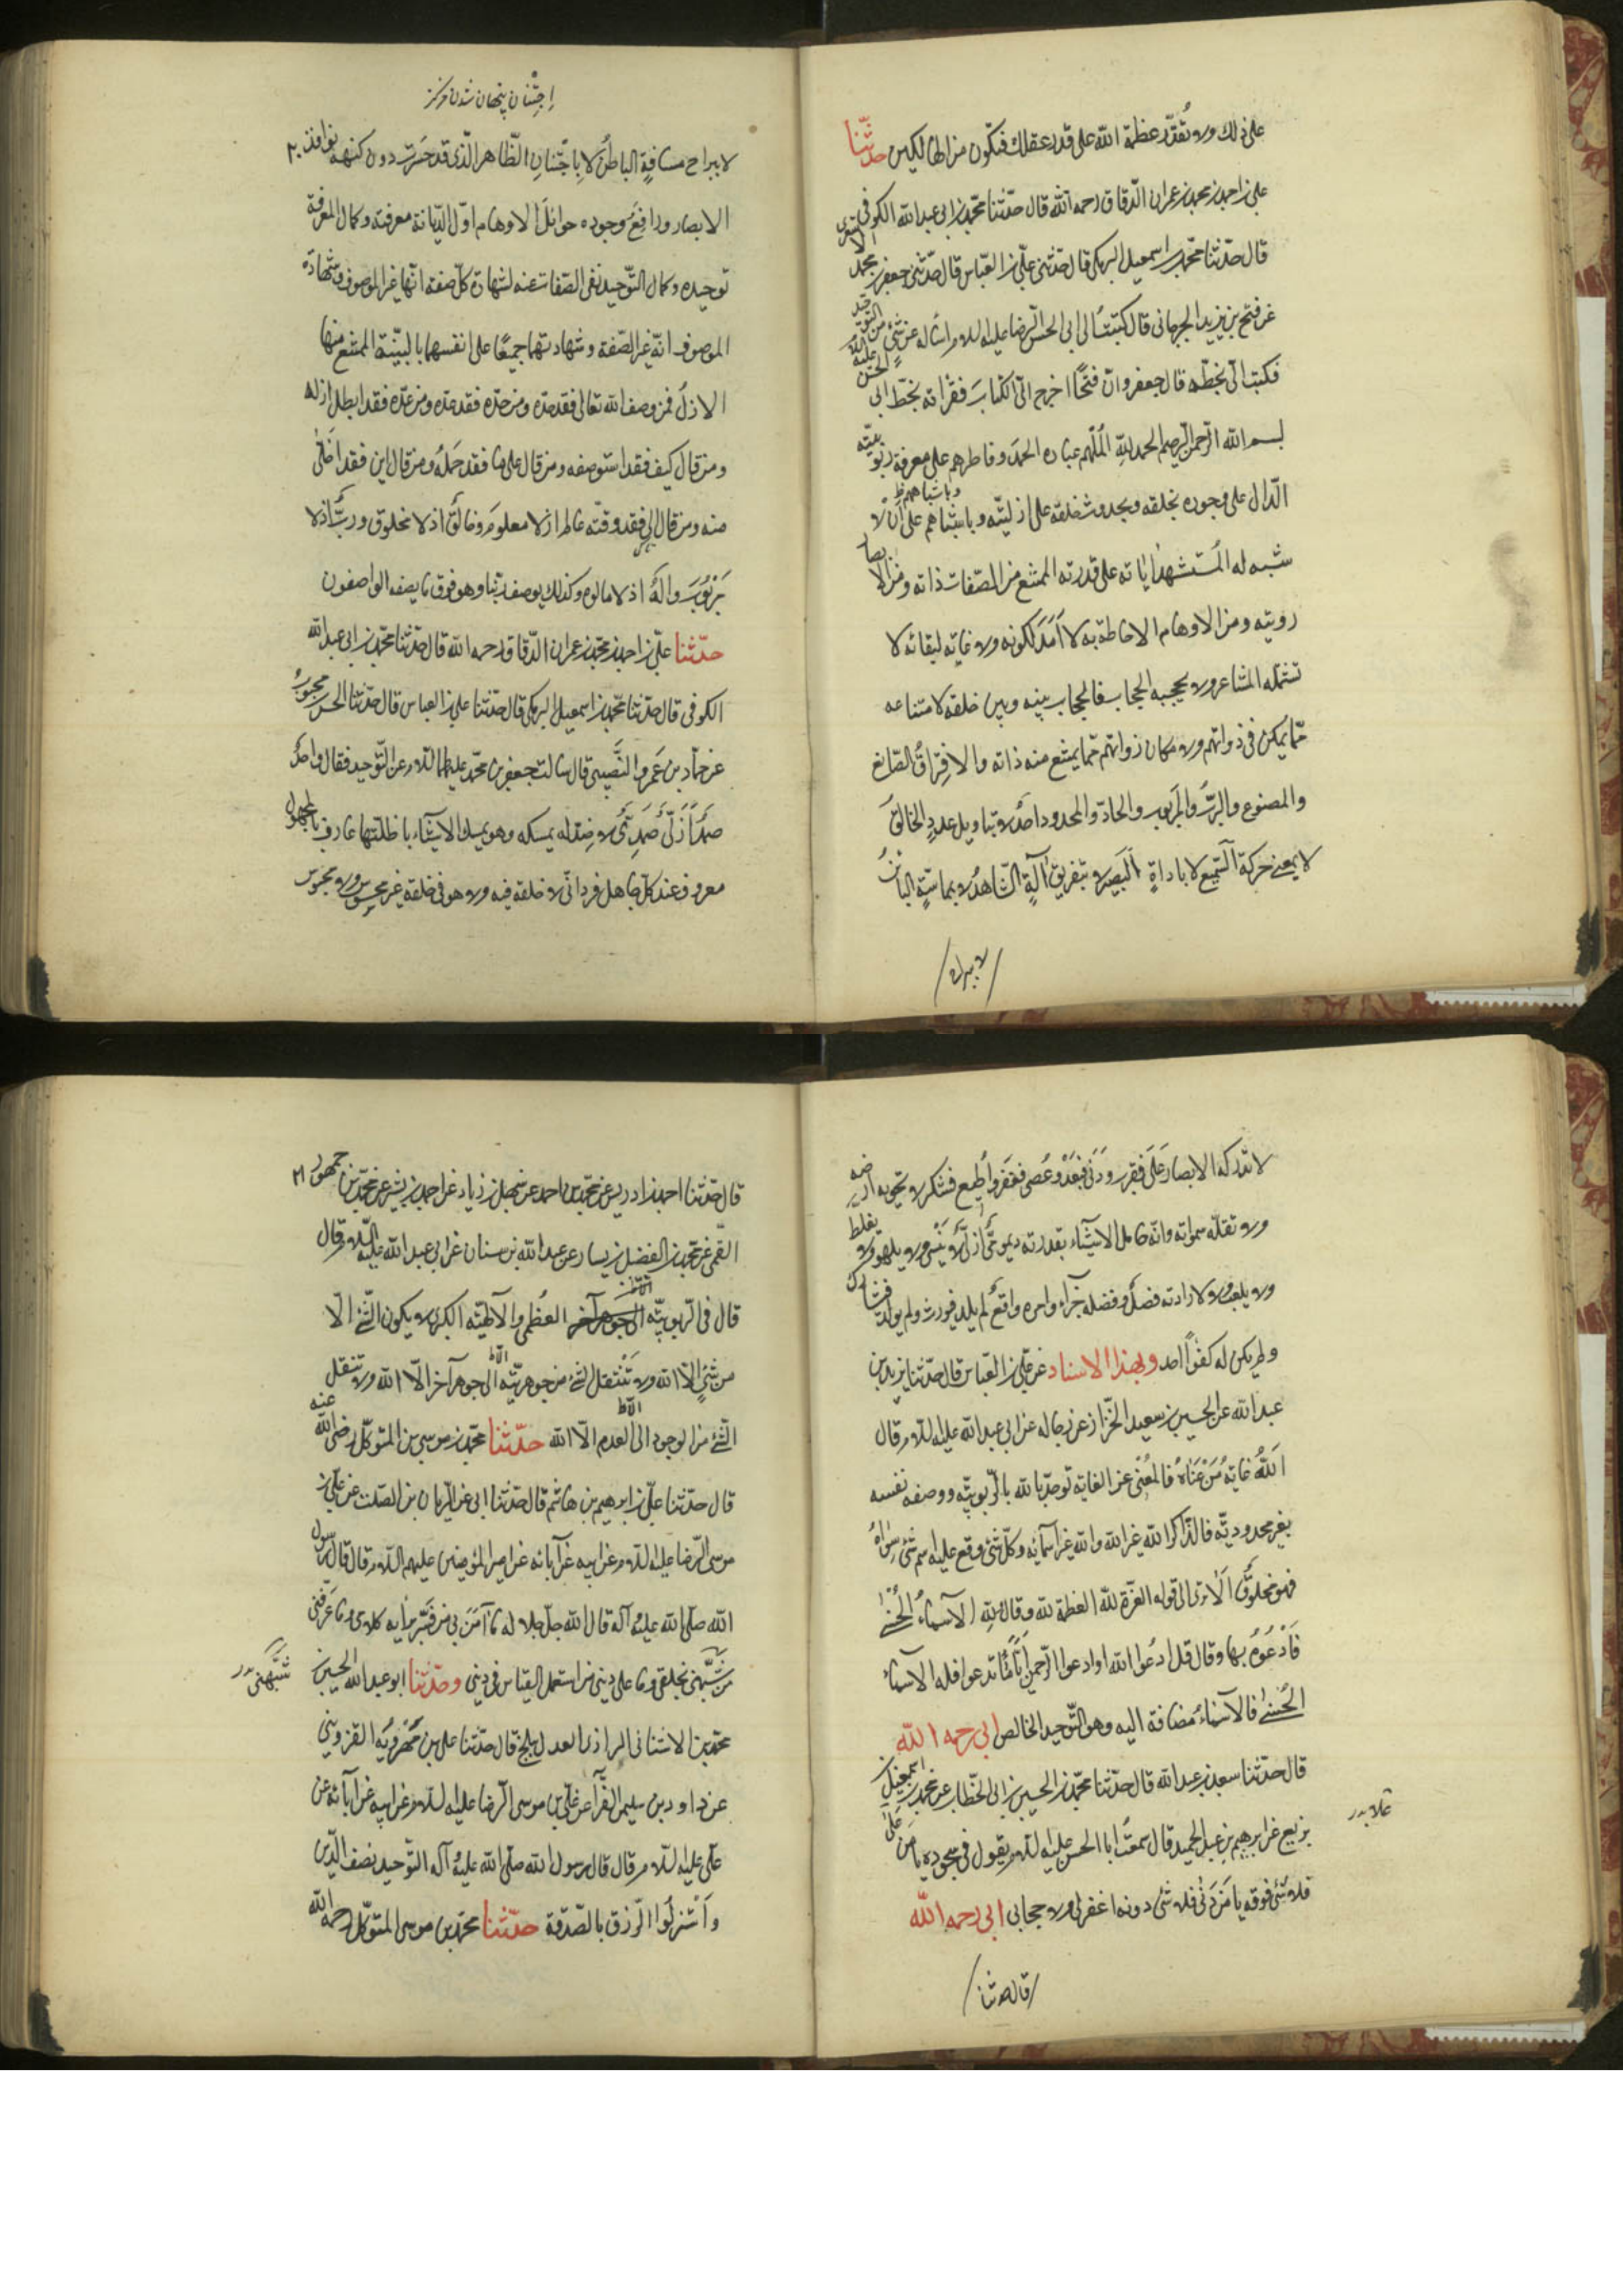 على ذلك ولا تقدّر عظمة الله على قدر عقلك فتكون من الهالكين حدّثنا
علي بن احمد بن محمد بن عمران الدّقاق رحمه الله قال حدّثنا محمّد بن ابي عبد الله الكوفي
قال حدّثنا محمّد بن اسمعيل البرمكي قال حدّثني عليّ بن العبّاس قال حدّثني جعفر بن محمد الاشعرى
عن فتح بن يزيد الجرجاني قال كتبتُ الى ابي الحسن الرّضا عليه السلام اسأله عن شئ من التوحيد
فكتب اليّ بخطّه قال جعفر وانّ فتحًا اخرج اليّ الكتابَ فقرأته بخطّ ابي الحسن عليه السلام
بسم الله الرّحمن الرّحيم الحمد للهِ المُلهم عباده الحمدَ وفاطرهم على معرفة ربوبيّته
الدّال على وجوده بخلقه وبحدوث خلقه على ازليّته وباشباههم على اَن لا
شبه له المُستشهد اٰياته على قدرته الممتنع من الصّفات ذاته ومن الابصار
رويته ومن الاوهام الاحاطة به لا اَمَدَ لكونه ولا غاية لبقائه لا
تشتمله المشاعر ولا يحجبه الحجاب فالحجاب بينه وبين خلقه لامتناعه
ممّا يمكن في ذواتهم ولا مكان ذواتهم ممّا يمتنع منه ذاته والافتراق الصّانع
والمصنوع والرّبّ والمربوب والحادّ والمحدود احدٌ لا بتاويل عددٍ الخالق
لا بمعنى حركة السّميع لا باداةٍ البَصير لا بتفريق اٰلةٍ الشّاهدُ لا بمماسّةٍ البائنُ
لا ببراح
اِجْتِنان پنهان شدن مركز
لا ببراح مسافةٍ الباطنُ لا بِاجْتِنانٍ الظّاهر الّذي قد حَسَرت دون كنهه نوافذ ٢٠
الابصار ودافَعَ وجوده حوائلَ الاوهام اوّل الدّيانة معرفته وكمال المعرفة
توحيده وكمال التّوحيد نفي الصّفات عنه لشهادة كلّ صفة انّها غير الموصوف وشهادة
الموصوف انّه غير الصّفة وشهادتهما جميعًا على انفسهما بالبيّنة الممتنع منها
الازلُ فمن وصف الله تعالى فقد حدّه ومن حدّه فقد عدّه ومن عدّه فقد ابطل ازله
ومن قال كيف فقد استوصفه ومن قال علىٰ ما فقد حَمَلَهُ ومن قال اين فقد اَخلى
منه ومن قال الى فقد وقّته عالم اذ لا معلومَ وخالقٌ اذ لا مخلوق وربٌّ اذ لا
مَربُوبَ والهٌ اذ لا مالوه وكذلك يوصف ربّنا وهو فوق ما يصفه الواصفون
حدّثنا عليّ بن احمد بن محمّد بن عمران الدّقاق رحمه الله قال حدّثنا محمّد بن ابي عبد الله
الكوفي قال حدّثنا محمّد بن اسمعيل البرمكي قال حدّثنا علي بن العباس قال حدّثنا الحسن بن محبوب
عن حمّاد بن عَمرو النَّصيبي قال سالت جعفر بن محمّد عليهما السّلام عن التّوحيد فقال واحدٌ
صمدٌ ازليٌّ صَمَدِيٌّ لا ضِدّ له يمسكه وهو يمسك الاشياء باظلّتها عارف بالمجهول
معروف عند كلّ جاهل فرداني لا خلقه فيه ولا هو في خلقه غير محسوس ولا محبوس
لا تدركه الابصار عَلَى فقرب ودَنَى فبَعُدَ وعُصى فغفر واُطيع فشكر لا تحويه ارضه
ولا تقلّه سمواته وانّه حامل الاشيٓاء بقدرته ديموميٌّ ازليٌّ لا يَنْسى ولا يلهو ولا يغلط
ولا يلعب ولا لارادته فصلٌ وفصله جزآء وامره واقعٌ لم يلد فيورث ولم يولد فيشارك
ولم يكن له كفوًا احد وبهذا الاسناد عن عليّ بن العبّاس قال حدّثنا يزيد بن
عبد الله عن الحسين بن سعيد الخزّاز عن رجاله عن ابي عبد الله عليه السّلام قال
اَللهُ غايةُ مَنْ غَيّاهُ فالمُغيّى غير الغاية توحّد بالرّبوبيّة ووصف نفسه
بغير محدوديّة فالذّاكر الله غير الله والله غير اسمآئه وكلّ شئ وقع عليه اسم شئ سِوَاهُ
فهو مخلوقٌ اَلا ترى الى قوله العزّة للّه العظمة لله وقال للهِ الاسمآءُ الحُسْنىٰ
فَادْعُوهُ بها وقال قل ادعُوا الله او ادعوا الرّحمن اَيًّا مّا تدعوا فله الاسمآء
الحُسْنىٰ فالاسمآءُ مضافة اليه وهو التّوحيد الخالص ابي رحمه الله
قال حدّثنا سعد بن عبد الله قال حدّثنا محمّد بن الحسين بن ابي الخطّاب عن محمّد بن اسمعيل بن
بزيع عن ابرهيم بن عبد الحميد قال سمعتُ ابا الحسن عليه السّلام يقول في سجوده يا مَن عَلىٰ
علا بدر
فلا شئ فوقه يا مَن دَنىٰ فلا شئ دونه اغفر لي ولاصحابي ابي رحمه الله
قال حدثنا
قال حدّثنا احمد بن ادريس عن محمّد بن احمد عن سهل بن زياد عن احمد بن بشير عن محمّد بن جمهور ٢١
القمّي عن محمّد بن الفضل بن يسار عن عبد الله بن سنان عن ابي عبد الله عليه السّلام قال
قال في الرّبوبيّة العُظمى والالٰهيّة الكبرى لا يكون الشّئ الّا
من شئٍ الّا الله ولا يَنْتقل الشّئ من جوهريّته الى جوهر آخر الّا الله ولا تنقل
الشّئ من الوجود الى العدم الّا الله حدّثنا محمّد بن موسى بن المتوكّل رضى الله عنه
قال حدّثنا عليّ بن ابرهيم بن هاشم قال حدّثنا ابي عن الرّيان بن الصّلت عن عليّ بن
موسى الرّضا عليه السّلام عن ابيه عن آبائه عن امير المؤمنين عليهم السّلام قال قال رسول
الله صلّى الله عليه وآله قال الله جلّ جلاله ما آمَنَ بي من فَسَّر برأيه كلامى وما عَرَفني
من شبّهني بخلقي وما على ديني من استعمل القياس في ديني وحدّثنا ابو عبد الله الحسين
شبّهنى بدر
محمّد بن الاشناني الرازى العدل ببلخ قال حدّثنا علي بن مَهْرَوَيْه القزويني
عن داود بن سليمن الفرّآء عن عليّ بن موسى الرّضا عليه السّلام عن ابيه عن آبائه عن
علي عليه السّلام قال قال رسول الله صلّى الله عليه وآله التّوحيد نصف الدّين
واَسْتَنزلُوا الرّزق بالصّدقة حدّثنا محمّد بن موسى المتوكّل رحمه الله